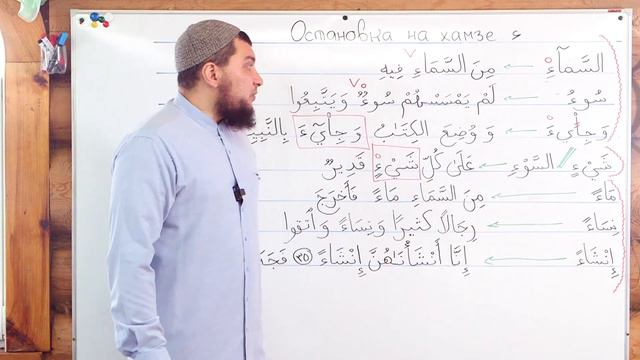 Остановка на хамзе ء
السَّمَآءِ ← مِنَ السَّمَاءِ فِيهِ
سُوءٌ ← لَمْ يَمْسَسْهُمْ سُوءٌ وَيَتَّبِعُوا
وَجِاْىٓءَ ← وَ وُضِعَ الكِتَٰبُ وَجِاْىٓءَ
شَيْءٍ // السَّوْءِ ← عَلَىٰ كُلِّ شَيْءٍ قَدِيرٌ
مَاءً ← مِنَ السَّمَاءِ مَاءً فَأَخْرَجَ
نِسَاءً ← رِجَالًا كَثِيرًا وَنِسَاءً وَاتَّقُوا
إِنْشَاءً ← إِنَّا أَنْشَأْنَٰهُنَّ إِنْشَاءً ٣٥